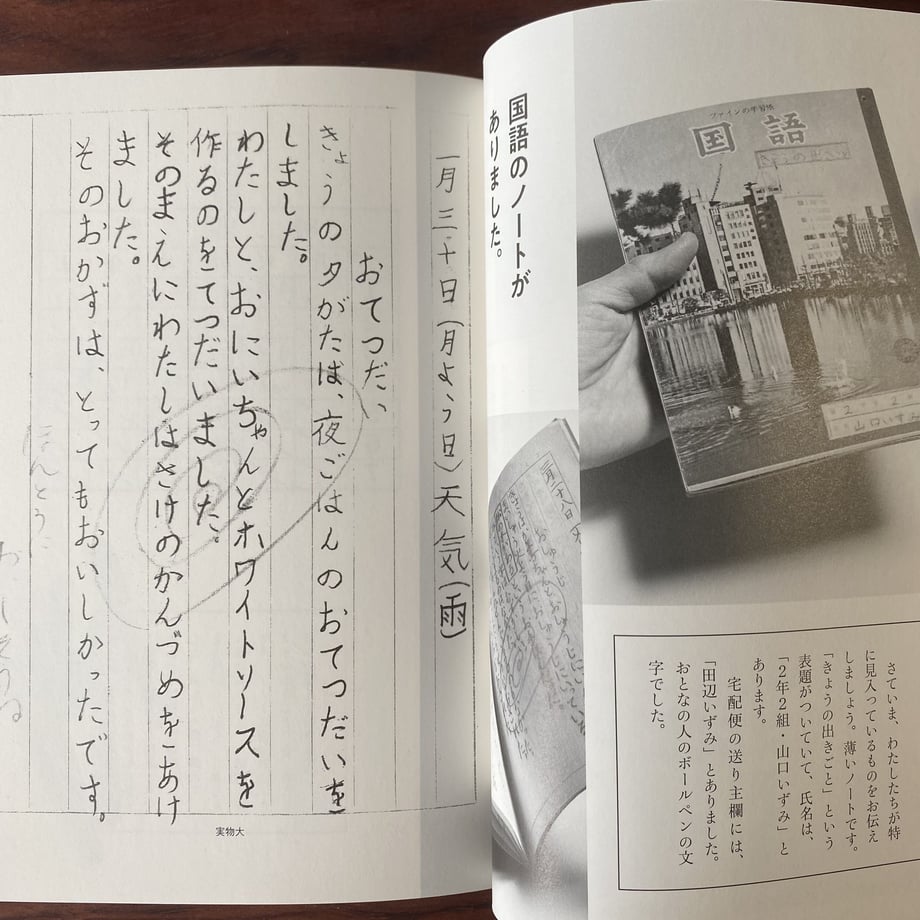 ファインの学習帳
国語
きょうの出きごと
2 2
山口いずみ
さていま、わたしたちが特
に見入っているものをお伝え
しましょう。薄いノートです。
「きょうの出きごと」という
表題がついていて、氏名は、
「２年２組・山口いずみ」と
あります。
宅配便の送り主欄には、
「田辺いずみ」とありました。
おとなの人のボールペンの文
字でした。
国語のノートが
ありました。
一月三十日(月よう日)天気(雨)
おてつだい
きょうの夕がたは、夜ごはんのおてつだいを
しました。
わたしと、おにいちゃんとホワイトソースを
作るのをてつだいました。
そのまえにわたしはさけのかんづめをあけ
ました。
そのおかずは、とってもおいしかったです。
ほんとうに
実物大